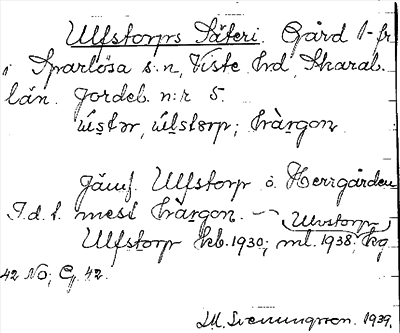 Ulfstorps Säteri. Gård 1-fr
i Sparlösa s:n, Viste hrd, Skarab.
län. Jordeb. n:r 5.
ù̀stər, ùlstorp; hà̀rgon.
Jämf. Ulfstorp o. Herrgården
I.d.l. mest hà̀rgon. — Ulvstorp
Ulfstorp kb. 1930; ml. 1938; kg
42 NO; Cg. 42.
1939.